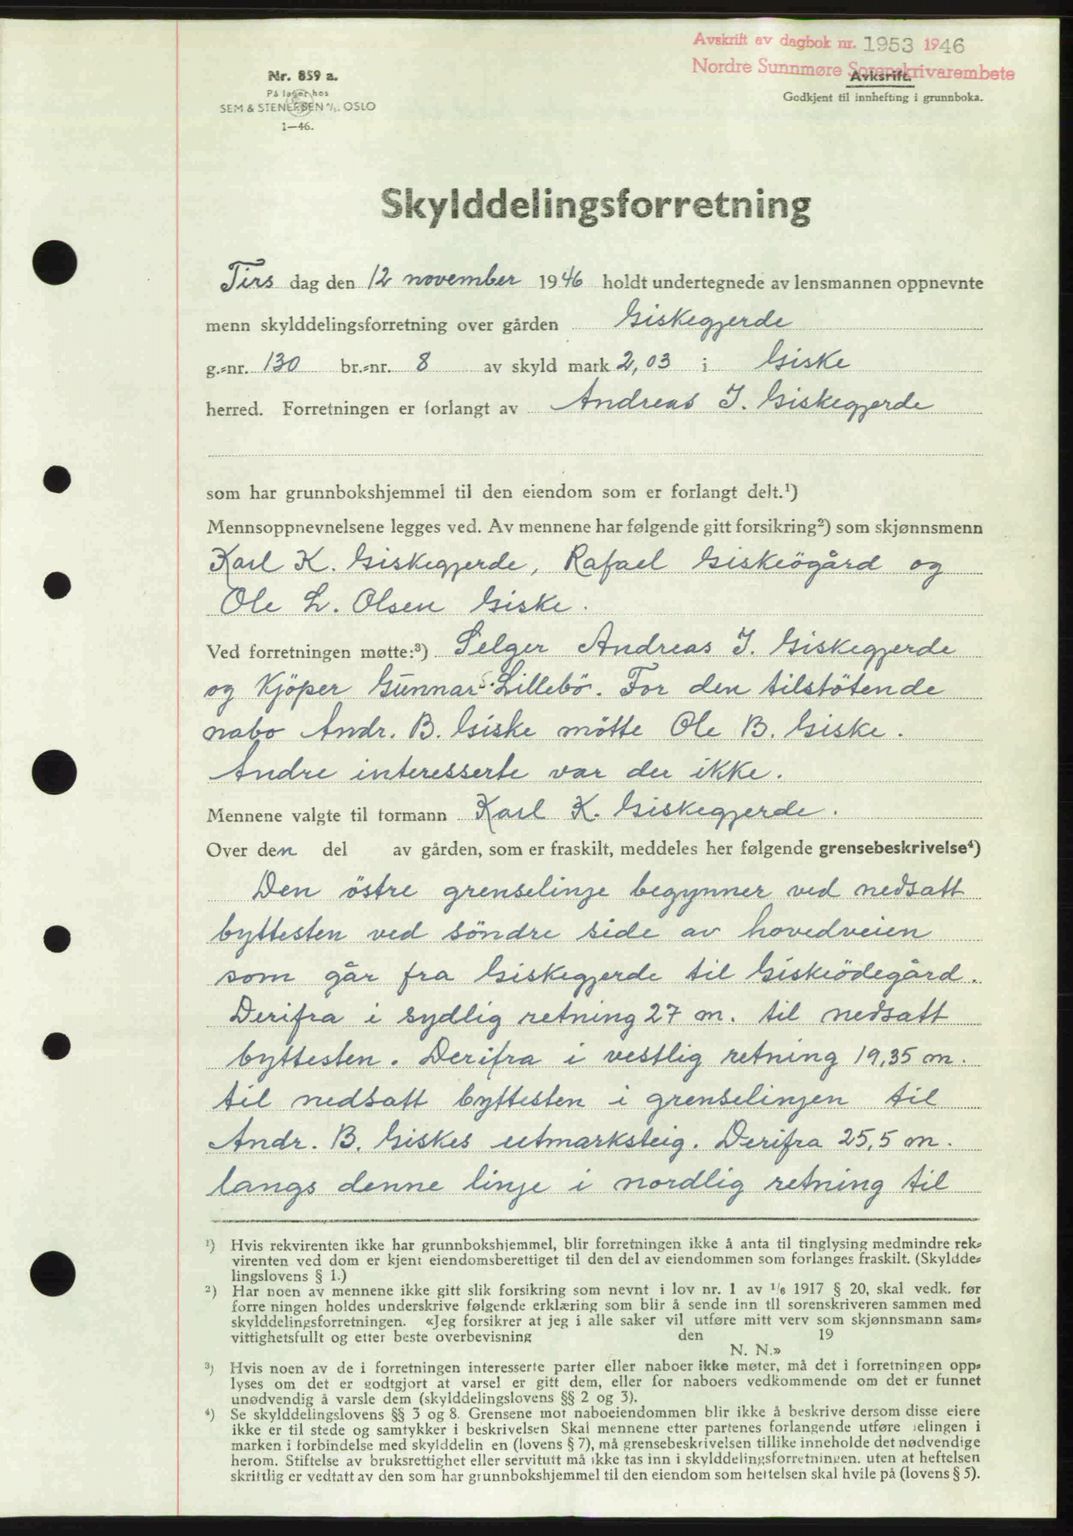 Avskrift av dagbok nr. 1953 1946
Nordre Sunnmøre Sorenskrivarembete
Avskrift.
Godkjent til innhefting i grunnboka.
Nr. 859 a.
På lager hos
SEM & STENERSEN A/S. OSLO
1—46.
Skylddelingsforretning
Tirs dag den 12 november 1946 holdt undertegnede av lensmannen oppnevnte
menn skylddelingsforretning over gården Giskegjerde
g.-nr. 130 br.-nr. 8 av skyld mark 2,03 i Giske
herred. Forretningen er forlangt av Andreas J. Giskegjerde
som har grunnbokshjemmel til den eiendom som er forlangt delt.¹)
Mennsoppnevnelsene legges ved. Av mennene har følgende gitt forsikring²) som skjønnsmenn
Karl K. Giskegjerde, Rafael Giskeögård og
Ole L. Olsen Giske.
Ved forretningen møtte:³) Selger Andreas J. Giskegjerde
og Kjöper Gunnar S. Lillebö. For den tilstötende
nabo Andr. B. Giske mötte Ole B. Giske.
Andre interesserte var der ikke.
Mennene valgte til formann Karl K. Giskegjerde.
Over den del av gården, som er fraskilt, meddeles her følgende grensebeskrivelse⁴)
Den östre grenselinje begynner ved nedsatt
byttesten ved söndre side av hovedveien
som går fra Giskegjerde til Giskeödegård.
Derifra i sydlig retning 27 m. til nedsatt
byttesten. Derifra i vestlig retning 19,35 m.
til nedsatt byttesten i grenselinjen til
Andr. B. Giskes utmarksteig. Derifra 25,5 m.
langs denne linje i nordlig retning til
¹) Hvis rekvirenten ikke har grunnbokshjemmel, blir forretningen ikke å anta til tinglysing medmindre rek-
virenten ved dom er kjent eiendomsberettiget til den del av eiendommen som forlanges fraskilt. (Skyldde-
lingslovens § 1.)
²) Har noen av mennene ikke gitt slik forsikring som nevnt i lov nr. 1 av 1/6 1917 § 20, skal vedk. før
forre ningen holdes underskrive følgende erklæring som blir å sende inn til sorenskriveren sammen med
skylddelingsforretningen. «Jeg forsikrer at jeg i alle saker vil utføre mitt verv som skjønnsmann sam-
vittighetsfullt og etter beste overbevisning den 19
N. N.»
³) Hvis noen av de i forretningen interesserte parter eller naboer ikke møter, må det i forretningen opp-
lyses om det er godtgjort at varsel er gitt dem, eller for naboers vedkommende om det er funnet
unødvendig å varsle dem (skylddelingslovens §§ 2 og 3).
⁴) Se skylddelingslovens §§ 3 og 8. Grensene mot naboeiendommen blir ikke å beskrive dersom disse eiere
ikke er til stede og samtykker i beskrivelsen Skal mennene etter partenes forlangende utføre delingen i
marken i forbindelse med skylddelin en (lovens § 7), må grensebeskrivelsen tillike inneholde det nødvendige
herom. Stiftelse av bruksrettighet eller servitutt må ikke tas inn i skylddelingsforretningen. uten at heftelsen
skriftlig er vedtatt av den som har grunnbokshjemmel til den eiendom som heftelsen skal hvile på (lovens § 5).